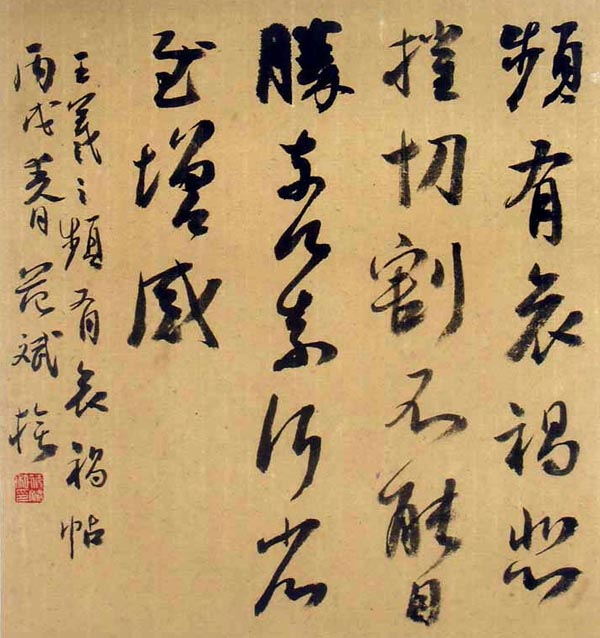 頻有哀禍悲
摧切割不能自
勝奈何奈何省
慰增感
王羲之頻有哀禍帖
丙戌春日范斌